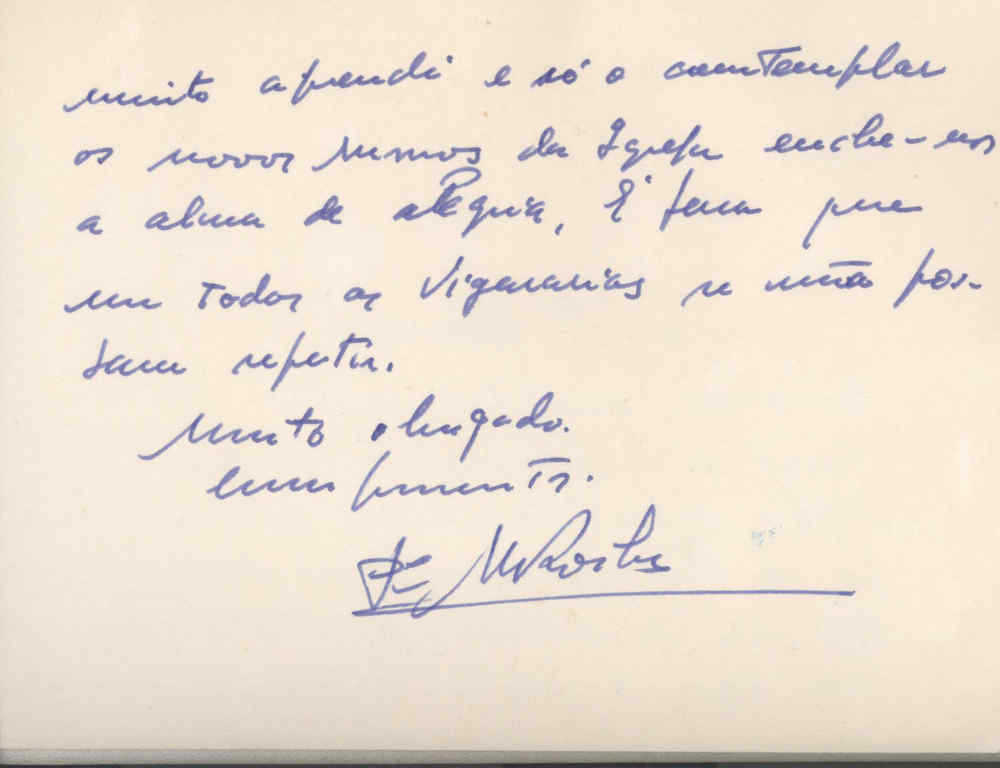 muito aprendi e só o comtemplar
os novos rumos da Igreja enche-nos
a alma de alegria, É pena que
em todas as Vigararias se não pos-
sam repetir.
Muito obrigado.
Cumprimentos.
Pe M Rocha